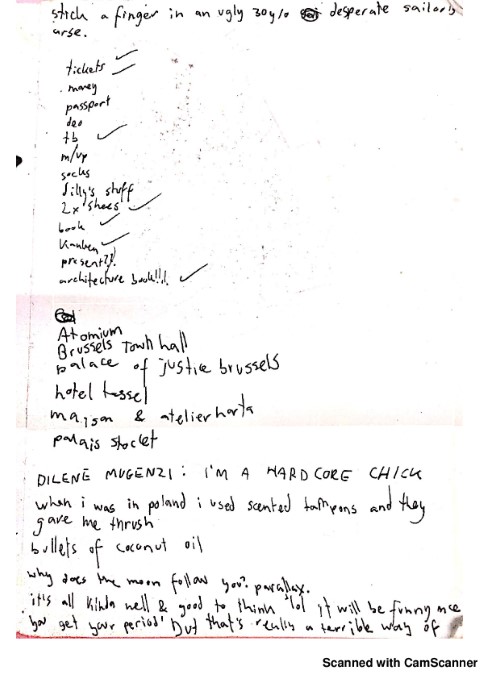 stick a finger in an ugly 30y/o desperate sailor's
arse.
tickets
money
passport
deo
tb
m/up
socks
Silly's stuff
2x shoes
book
Kanken
present?!!
architecture book!!!!
Atomium
Brussels Town hall
palace of justice brussels
hotel tassel
maison & atelier horta
palais stoclet
DILENE MUGENZI: I'M A HARDCORE CHICK
when i was in poland i used scented tampons and they
gave me thrush
bullets of coconut oil
why does the moon follow you? parallax.
it's all kinda well & good to think 'lol it will be funny once
you get your period' but that's really a terrible way of
Scanned with CamScanner